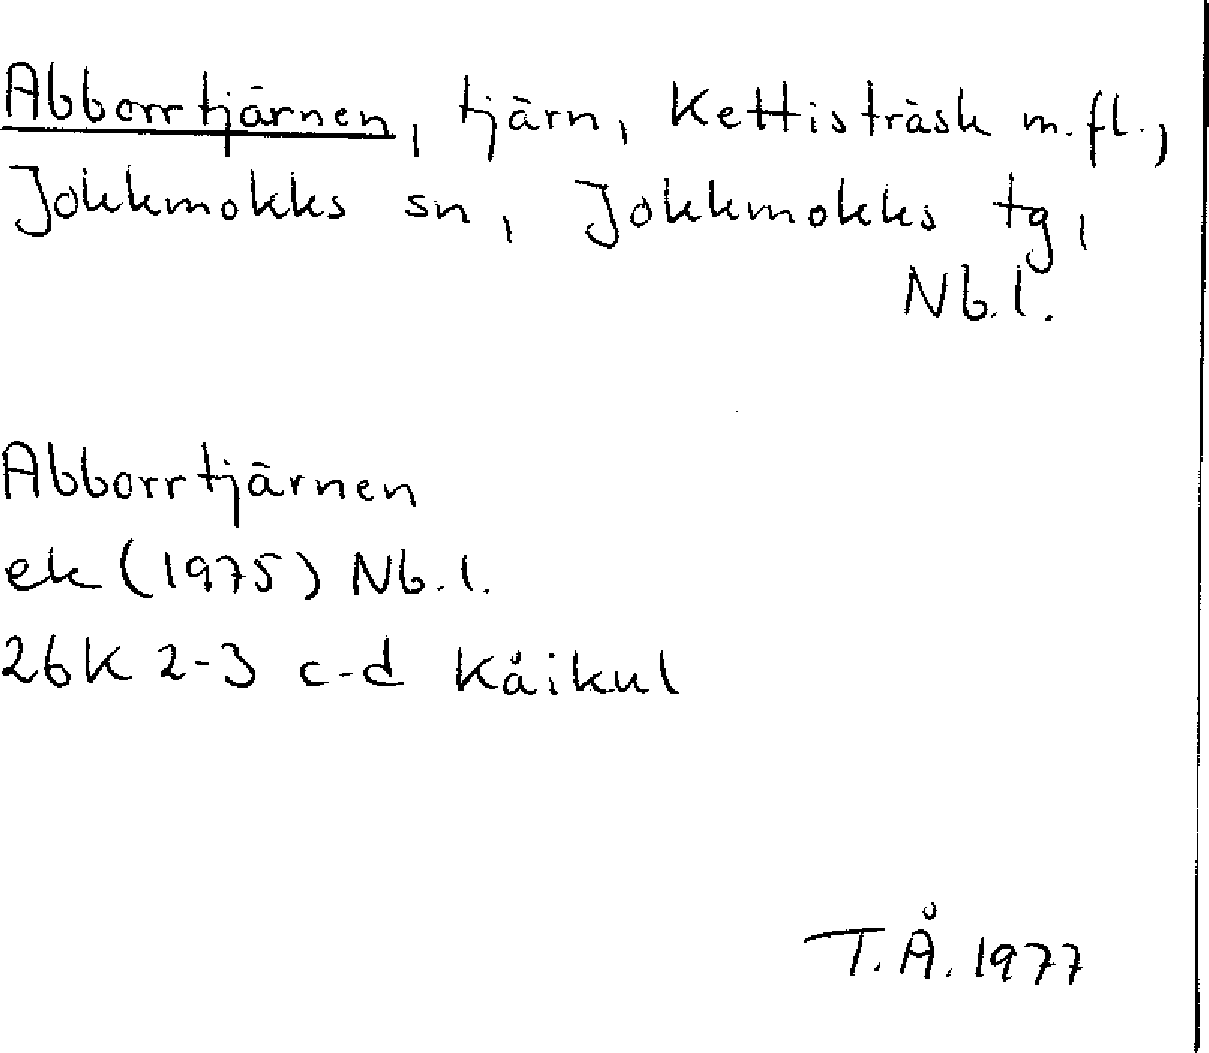 Abborrtjärnen, tjärn, Kettisträsk m.fl.,
Jokkmokks sn, Jokkmokks tg,
Nb.l.
Abborrtjärnen
ek (1975) Nb.l.
26K 2-3 c-d Kåikul
T.Å. 1977